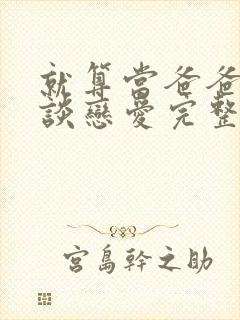 就算當爸爸
談戀愛完整
宮島幹之助